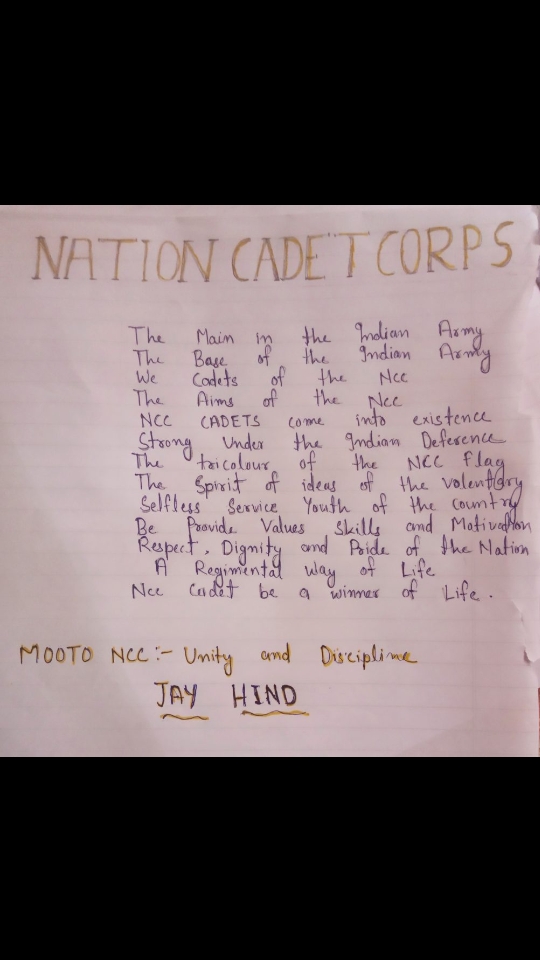 NATION CADET CORPS
The Main in the Indian Army
The Base of the Indian Army
We Cadets of the NCC
The Aims of the NCC
NCC CADETS come into existence
Strong Under the Indian Deference
The tricolour of the NCC Flag
The Spirit of ideas of the volentary
Selfless Service Youth of the country
Be Provide Values Skills and Motivation
Respect, Dignity and Pride of the Nation
A Regimental way of Life
Ncc Cadet be a winner of Life.
MOOTO NCC:- Unity and Discipline
JAY HIND